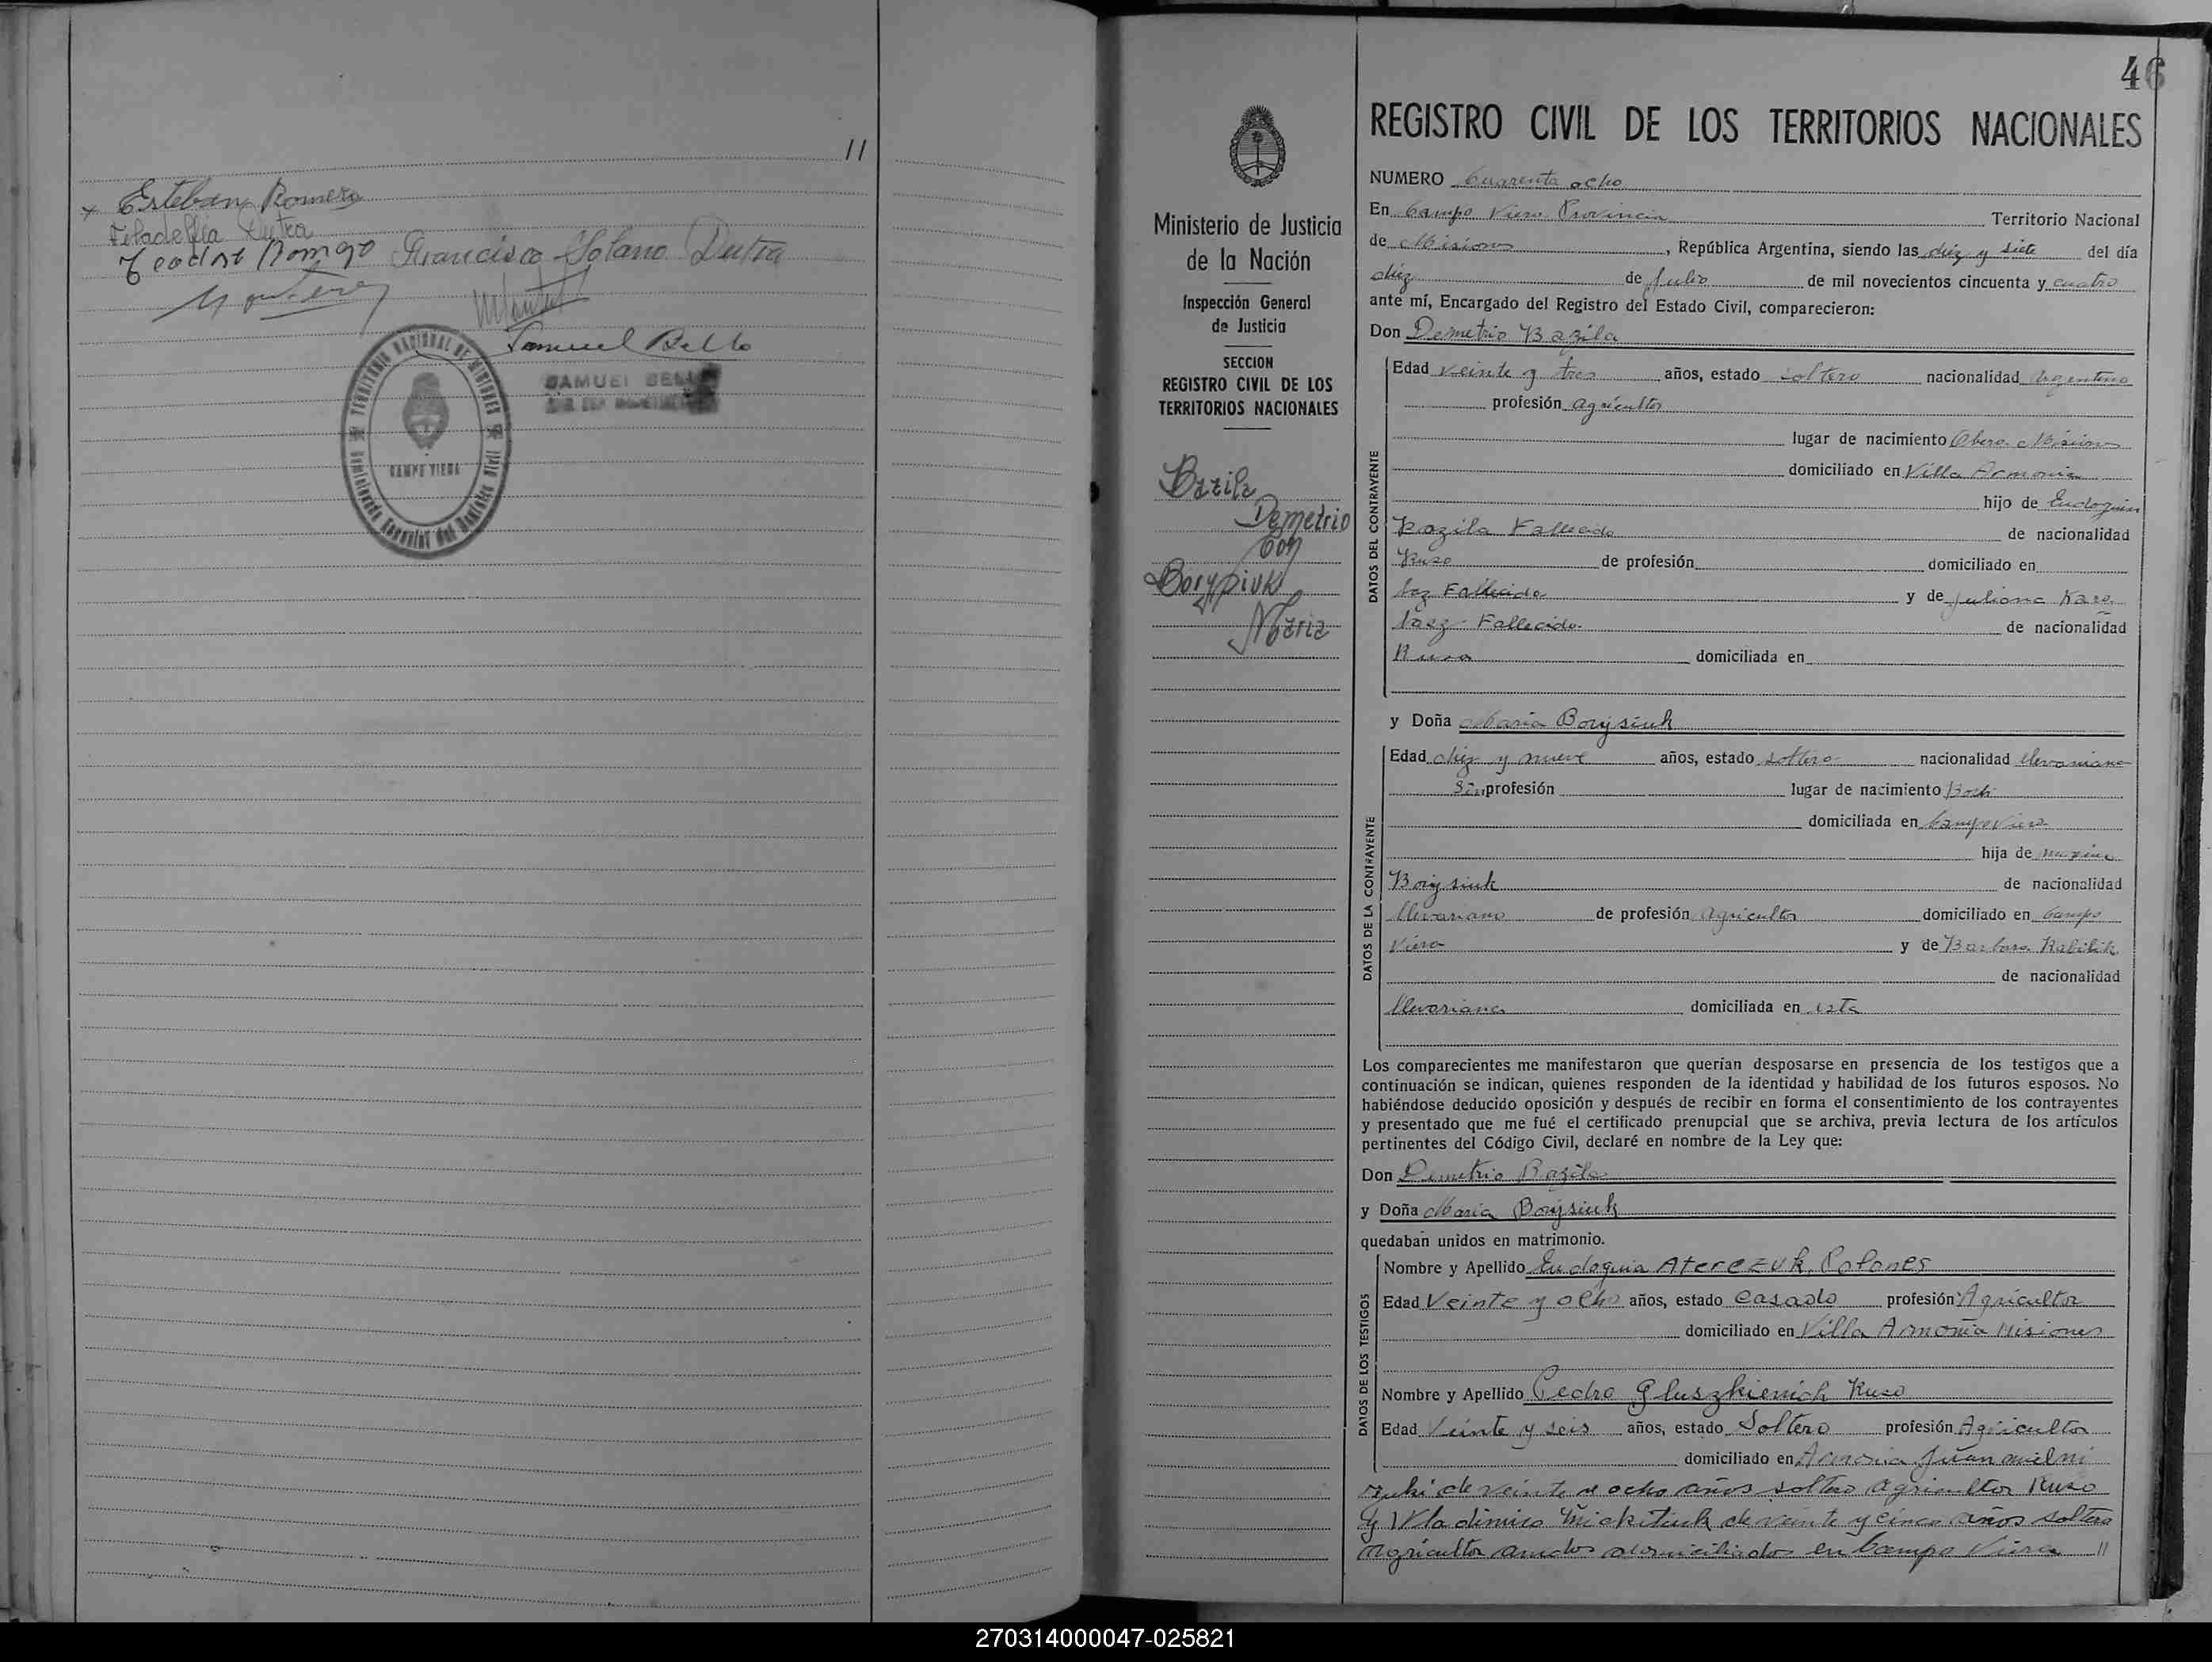 11
Esteban Romero
Filadelfia Dutra
Teodoro Romero Francisco Solano Dutra
Samuel Bello
TERRITORIO NACIONAL DE MISIONES
CAMPO VIERA
SAMUEL BELLO
46
REGISTRO CIVIL DE LOS TERRITORIOS NACIONALES
Ministerio de Justicia
de la Nación
Inspección General
de Justicia
SECCION
REGISTRO CIVIL DE LOS
TERRITORIOS NACIONALES
Bazila
Demetrio
Con
Borysiuk
Maria
NUMERO Cuarenta ocho
En Campo Viera Provincia Territorio Nacional
de Misiones, República Argentina, siendo las diez y siete del día
diez de Julio de mil novecientos cincuenta y cuatro
ante mí, Encargado del Registro del Estado Civil, comparecieron:
Don Demetrio Bazila
DATOS DEL CONTRAYENTE
Edad veinte y tres años, estado soltero nacionalidad Argentino
profesión agricultor
lugar de nacimiento Obera Misiones
domiciliado en Villa Armonia
hijo de
Bazila Fallecido de nacionalidad
Ruso de profesión domiciliado en
Fallecido y de Juliana
Fallecido de nacionalidad
Rusa domiciliada en
y Doña Maria Borysiuk
DATOS DE LA CONTRAYENTE
Edad diez y nueve años, estado soltera nacionalidad
Sin profesión lugar de nacimiento
domiciliada en Campo Viera
hija de
Borysiuk de nacionalidad
de profesión Agricultor domiciliado en Campo
Viera y de Barbara
de nacionalidad
domiciliada en esta
Los comparecientes me manifestaron que querian desposarse en presencia de los testigos que a
continuación se indican, quienes responden de la identidad y habilidad de los futuros esposos. No
habiéndose deducido oposición y después de recibir en forma el consentimiento de los contrayentes
y presentado que me fué el certificado prenupcial que se archiva, previa lectura de los artículos
pertinentes del Código Civil, declaré en nombre de la Ley que:
Don Demetrio Bazila
y Doña Maria Borysiuk
quedaban unidos en matrimonio.
DATOS DE LOS TESTIGOS
Nombre y Apellido Eudoquia Aterczuk Polones
Edad Veinte y ocho años, estado Casado profesión Agricultor
domiciliado en Villa Armonia Misiones
Nombre y Apellido Pedro Gluszkienich Ruso
Edad Veinte y seis años, estado Soltero profesión Agricultor
domiciliado en Armonia Juan
de veinte y ocho años soltero agricultor Ruso
y Wladimiro Mickitiuk de veinte y cinco años soltero
agricultor domiciliados en Campo Viera 11
270314000047-025821